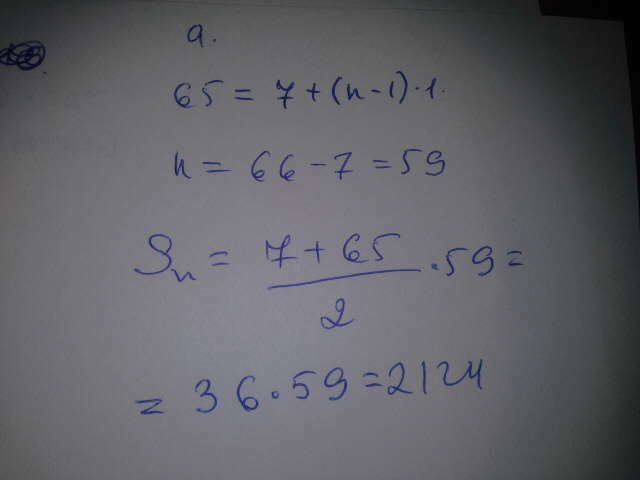 a.
65 = 7 + (n - 1) · 1.
n = 66 - 7 = 59
Sn = \frac{7 + 65}{2} · 59 =
= 36 · 59 = 2124